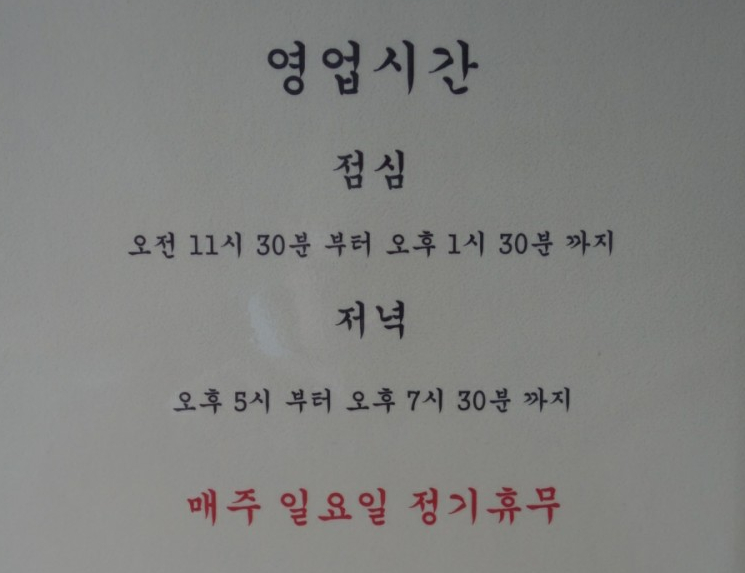 영업시간
점심
오전 11시 30분 부터 오후 1시 30분 까지
저녁
오후 5시 부터 오후 7시 30분 까지
매주 일요일 정기휴무